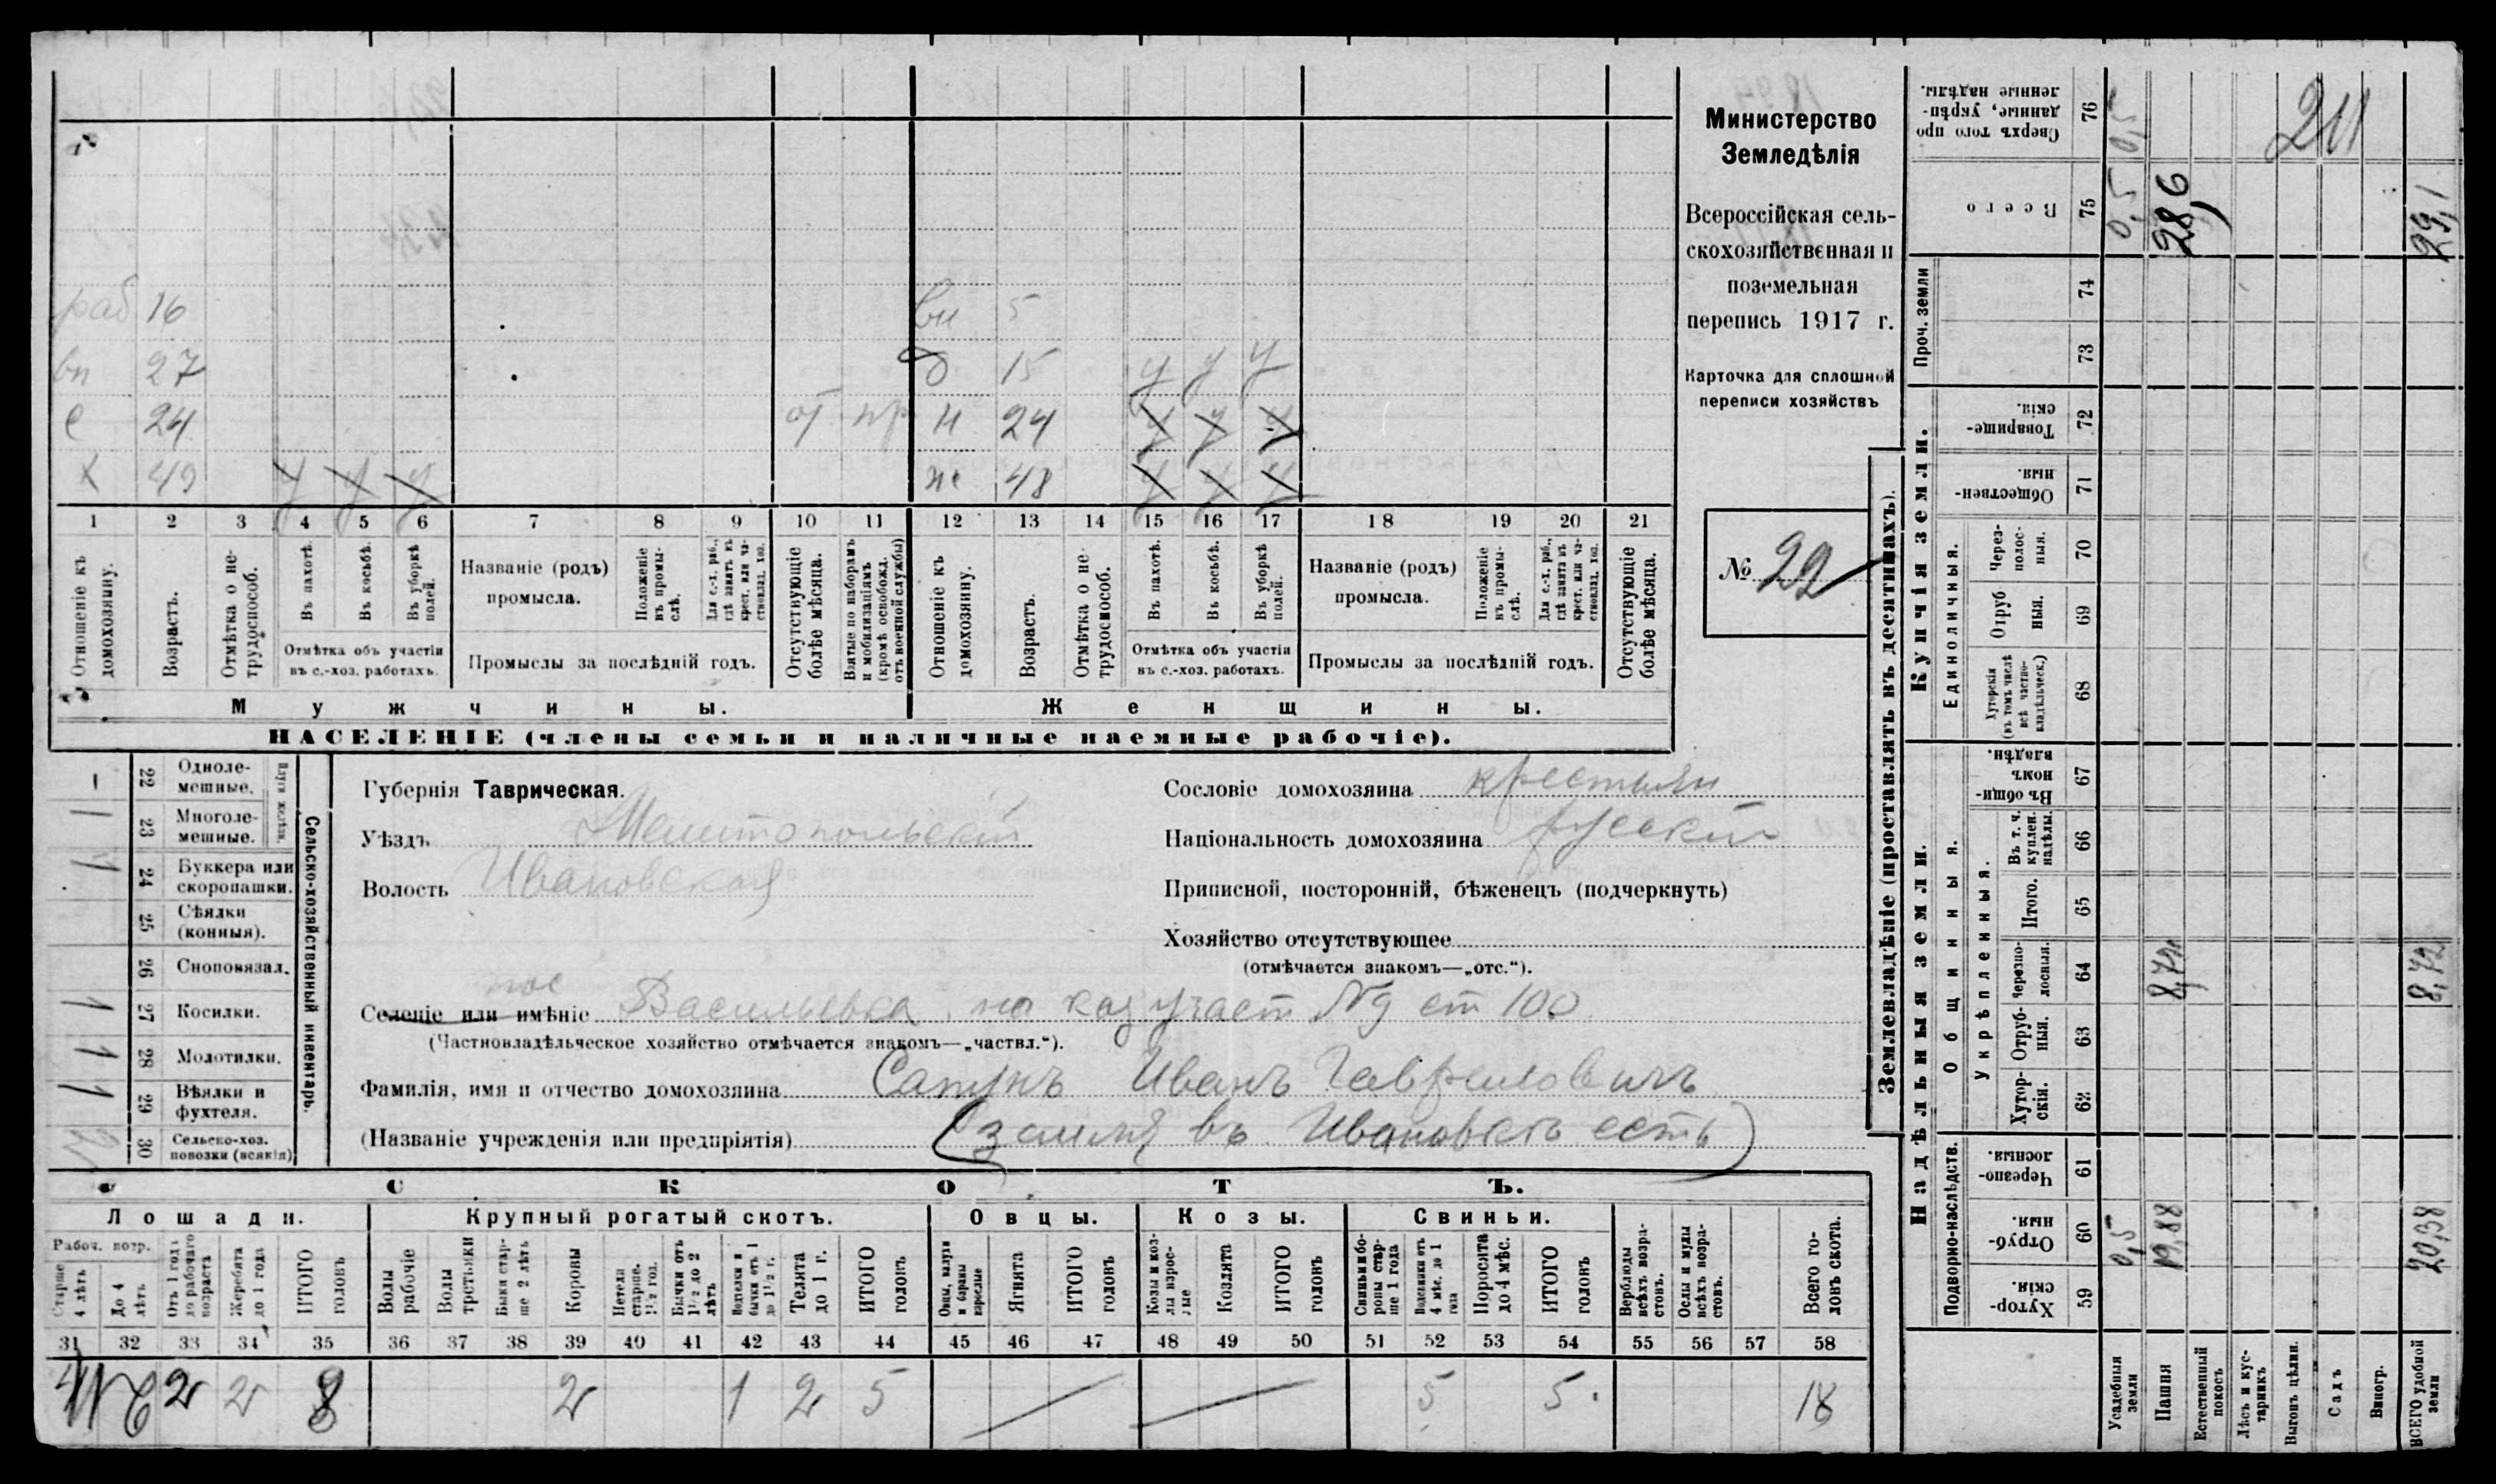 раб 16 вн 5
вн 27 д 15 у у у
с 24 от пр н 24 у у у
х 49 у у у же 48 у у у
1 2 3 4 5 6 7 8 9 10 11 12 13 14 15 16 17 18 19 20 21
Отношеніе къ домохозяину.
Возрастъ.
Отмѣтка о не-трудоспособ.
Въ пахотѣ.
Въ косьбѣ.
Въ уборкѣ полей.
Отмѣтка объ участіи
въ с.-хоз. работахъ.
Названіе (родъ)
промысла.
Положеніе въ промы-слѣ.
Для с.-х. раб., гдѣ занятъ въ крест. или ча-стновлад. хоз.
Промыслы за послѣдній годъ.
Отсутствующіе болѣе мѣсяца.
Взятые по наборамъ и мобилизаціямъ (кромѣ освобожд. отъ военной службы)
Отношеніе къ домохозяину.
Возрастъ.
Отмѣтка о не-трудоспособ.
Въ пахотѣ.
Въ косьбѣ.
Въ уборкѣ полей.
Отмѣтка объ участіи
въ с.-хоз. работахъ.
Названіе (родъ)
промысла.
Положеніе въ промы-слѣ.
Для с.-х. раб., гдѣ занята въ крест. или ча-стновлад. хоз.
Промыслы за послѣдній годъ.
Отсутствующіе болѣе мѣсяца.
Мужчины. Женщины.
НАСЕЛЕНІЕ (члены семьи и наличные наемные рабочіе).
Министерство
Земледѣлія
Всероссійская сель-
скохозяйственная и
поземельная
перепись 1917 г.
Карточка для сплошной
переписи хозяйствъ
№ 22
Сельско-хозяйственный инвентарь.
22 Одноле-мешные.
1 23 Многоле-мешные.
1 24 Буккера или скоропашки.
25 Сѣялки (конныя).
26 Сноповязал.
1 27 Косилки.
1 28 Молотилки.
1 29 Вѣялки и фухтеля.
30 Сельско-хоз. повозки (всякія)
Губернія Таврическая.
Уѣздъ Мелитопольскій
Волость Ивановская
Сословіе домохозяина крестьян
Національность домохозяина русскій
Приписной, посторонній, бѣженецъ (подчеркнуть)
Хозяйство отсутствующее
(отмѣчается знакомъ—„отс.“).
пос
Селеніе или имѣніе Васильевка, на каз участ № 9 ст 100
(Частновладѣльческое хозяйство отмѣчается знакомъ—„частвл.“).
Фамилія, имя и отчество домохозяина Сапунъ Иванъ Гавриловичъ
(Названіе учрежденія или предпріятія) (земля въ Ивановкѣ есть)
СКОТЪ.
Лошади. Крупный рогатый скотъ. Овцы. Козы. Свиньи.
Рабоч. возр.
Старше 4 лѣтъ
До 4 лѣтъ
Отъ 1 года до рабочаго возраста
Жеребята до 1 года
ИТОГО головъ
Волы рабочіе
Волы третьяки
Быки стар-ше 2 лѣтъ
Коровы
Нетели старше 1½ год.
Бычки отъ 1½ до 2 лѣтъ
Подтелки и бычки отъ 1 до 1½ г.
Телята до 1 г.
ИТОГО головъ
Овцы, валухи и бараны взрослые
Ягнята
ИТОГО головъ
Козы и коз-лы взрос-лые
Козлята
ИТОГО головъ
Свиньи и бо-ровы стар-ше 1 года
Подсвинки отъ 4 мѣс. до 1 года
Поросята до 4 мѣс.
ИТОГО головъ
Верблюды всѣхъ возра-стовъ.
Ослы и мулы всѣхъ возра-стовъ.
Всего го-ловъ скота.
31 32 33 34 35 36 37 38 39 40 41 42 43 44 45 46 47 48 49 50 51 52 53 54 55 56 57 58
4 2 2 8 2 1 2 5 5 5 18
Землевладѣніе (проставлять въ десятинахъ).
Сверхъ того про-данные, укрѣп-ленные надѣлы. 76 0,5 211
Всего 75 0,5 28,6 29,1
Купчія земли.
Проч. земли 74
73
Товарище-скія. 72
Обществен-ныя. 71
Единоличныя.
Через-полос-ныя. 70
Отруб-ныя. 69
Хуторскія (въ томъ числѣ всѣ частно-владѣльческ.) 68
Надѣльныя земли.
Общинныя.
Въ общин-номъ владѣн. 67
Укрѣпленныя.
Въ т. ч. куплен. надѣлы. 66
Итого. 65
Черезпо-лосныя. 64 8,72 8,72
Отруб-ныя. 63
Хутор-скія. 62
Подворно-наслѣдств.
Черезпо-лосныя. 61
Отруб-ныя. 60 0,5 19,88 20,38
Хутор-скія. 59
Усадебныя земли
Пашня
Естественный покосъ
Лѣсъ и кус-тарникъ
Выгонъ цѣлин.
Садъ
Виногр.
ВСЕГО удобной земли